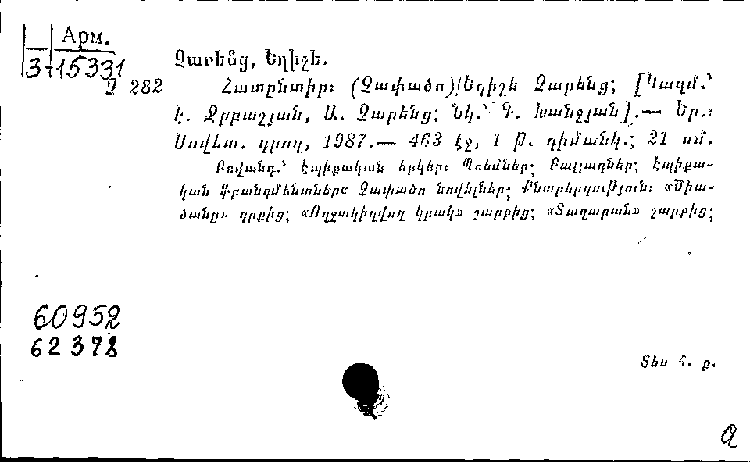 Арм.
3-15331
Չ 282
Չարենց, Եղիշե.
Հատընտիր: (Չափածո)/Եղիշե Չարենց; [Կազմ.՝
է. Ջրբաշյան, Ա. Չարենց; Նկ.՝ Գ. Խանջյան].— Եր.:
Սովետ. գրող, 1987.— 463 էջ, 1 թ. դիմանկ.; 21 սմ.
Բովանդ.՝ էպիքական երկեր: Պոեմներ; Բալլադներ; էպիքա-
կան ֆրագմենտներ: Չափածո նովելներ; Քնարերգություն:
ծանը» գրքից; «Ողջակիզվող կրակ» շարքից; «Տաղարան» շարքից;
60952
62378
Տես հ. ք.